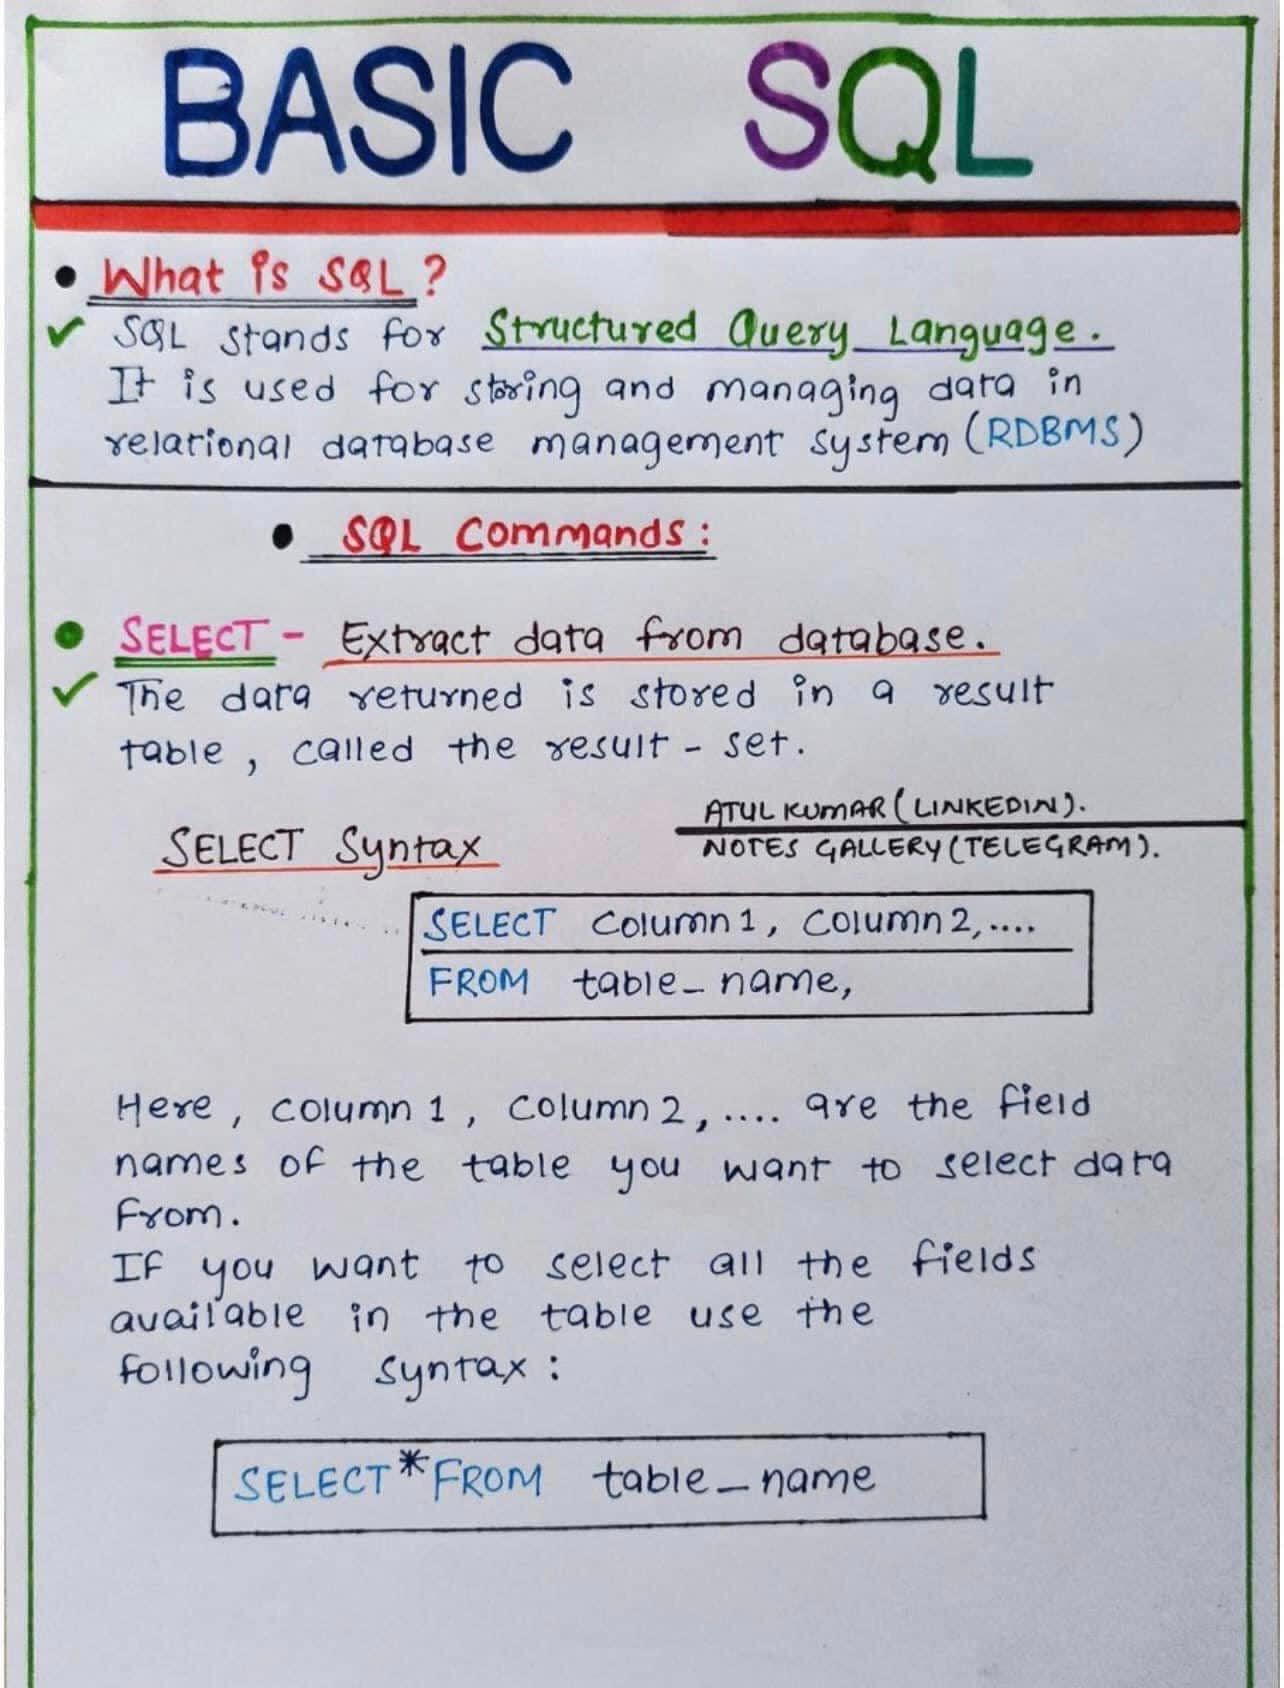 BASIC SQL
• What is SQL?
✓ SQL stands for Structured Query Language.
It is used for storing and managing data in
relational database management system (RDBMS)
• SQL Commands:
• SELECT - Extract data from database.
✓ The data returned is stored in a result
table, called the result - set.
ATUL KUMAR (LINKEDIN).
SELECT Syntax
NOTES GALLERY (TELEGRAM).
SELECT Column 1, Column 2,....
FROM table_name,
Here, column 1, column 2, .... are the field
names of the table you want to select data
from.
If you want to select all the fields
available in the table use the
following syntax:
SELECT * FROM table_name